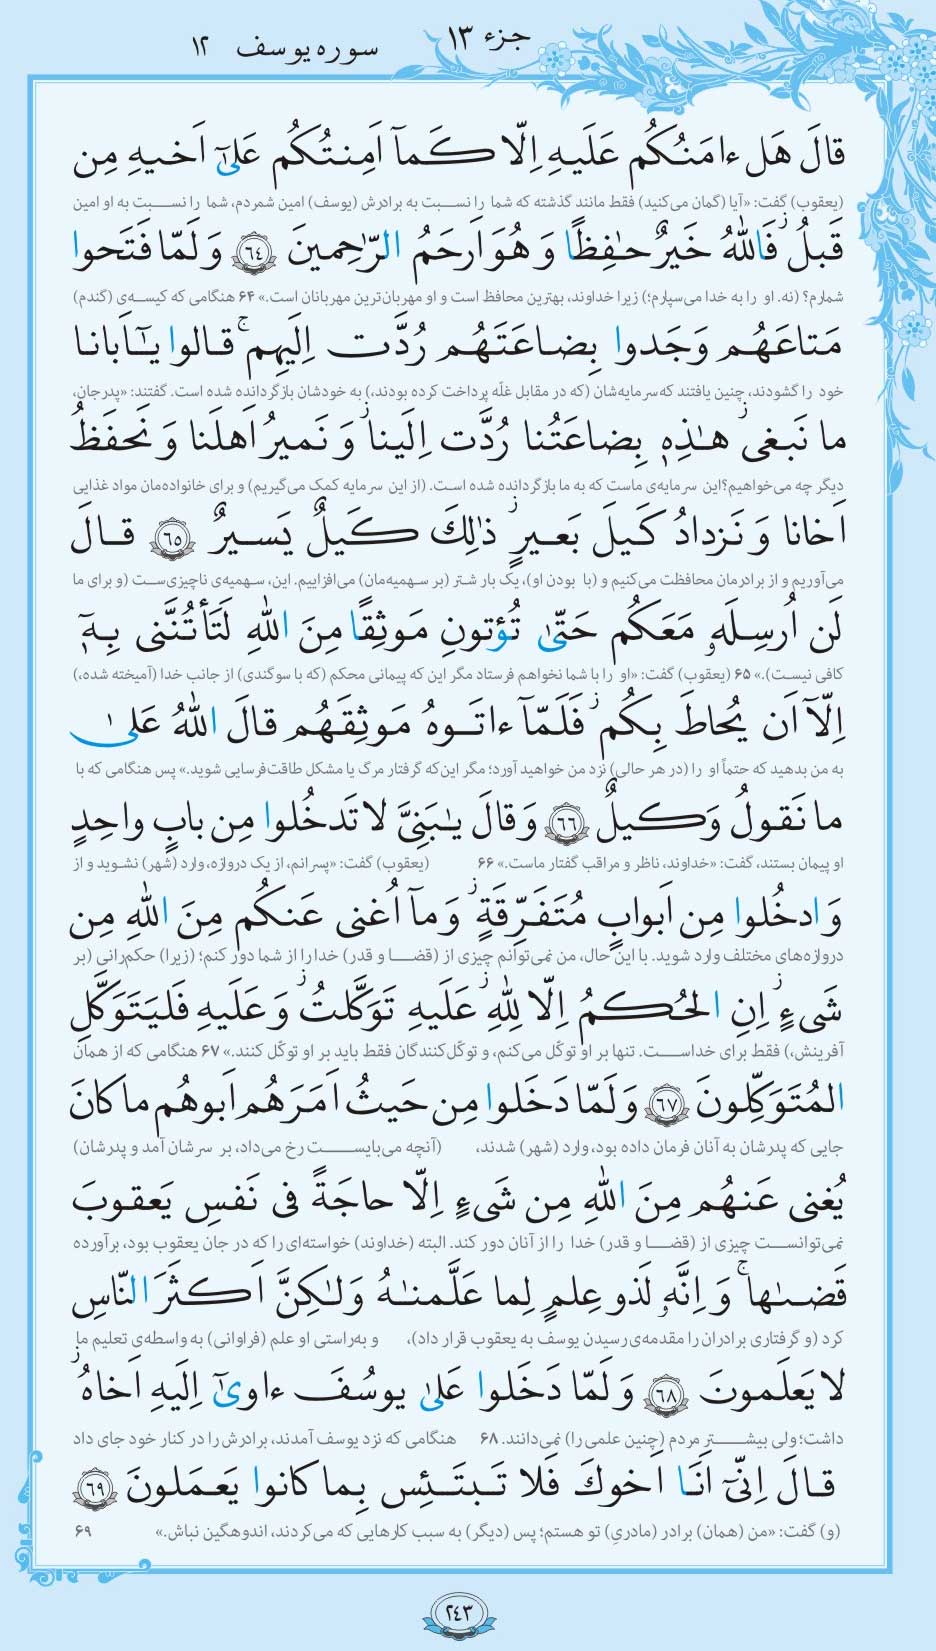 جزء ۱۳
سوره یوسف ۱۲
قالَ هَل ءامَنُكُم عَلَيهِ اِلّا كَمآ اَمِنتُكُم عَلىٰٓ اَخيهِ مِن
(یعقوب) گفت: «آیا (گمان می‌کنید) فقط مانند گذشته که شما را نسبت به برادرش (یوسف) امین شمردم، شما را نسبت به او امین
قَبلُ ۖ فَاللهُ خَيرٌ حٰفِظًا وَ هُوَ اَرحَمُ الرّٰحِمينَ ﴿٦٤﴾ وَ لَمّا فَتَحوا
شمارم؟ (نه. او را به خدا می‌سپارم؛) زیرا خداوند، بهترین محافظ است و او مهربان‌ترین مهربانان است.» ۶۴ هنگامی که کیسه‌ی (گندم)
مَتاعَهُم وَجَدوا بِضاعَتَهُم رُدَّت اِلَيهِم ۚ قالوا يٰٓاَبانا
خود را گشودند، چنین یافتند که سرمایه‌شان (که در مقابل غلّه پرداخت کرده بودند،) به خودشان بازگردانده شده است. گفتند: «پدرجان،
ما نَبغى ز هٰذِهٖ بِضاعَتُنا رُدَّت اِلَينا ز وَ نَميرُ اَهلَنا وَ نَحفَظُ
دیگر چه می‌خواهیم؟ این سرمایه‌ی ماست که به ما بازگردانده شده است. (از این سرمایه کمک می‌گیریم) و برای خانواده‌مان مواد غذایی
اَخانا وَ نَزدادُ كَيلَ بَعيرٍ ز ذٰلِكَ كَيلٌ يَسيرٌ ﴿٦٥﴾ قالَ
می‌آوریم و از برادرمان محافظت می‌کنیم و (با بودن او)، یک بار شتر (بر سهمیه‌مان) می‌افزاییم. این، سهمیه‌ی ناچیزی‌ست (و برای ما
لَن اُرسِلَهٗ مَعَكُم حَتّىٰ تُؤتونِ مَوثِقًا مِنَ اللهِ لَتَأتُنَّنى بِهٖٓ
کافی نیست).» ۶۵ (یعقوب) گفت: «او را با شما نخواهم فرستاد مگر این که پیمانی محکم (که با سوگندی) از جانب خدا (آمیخته شده،)
اِلّآ اَن يُحاطَ بِكُم ز فَلَمّآ ءاتَوهُ مَوثِقَهُم قالَ اللهُ عَلىٰ
به من بدهید که حتماً او را (در هر حالی) نزد من خواهید آورد؛ مگر این‌که گرفتار مرگ یا مشکل طاقت‌فرسایی شوید.» پس هنگامی که با
ما نَقولُ وَكيلٌ ﴿٦٦﴾ وَ قالَ يٰبَنِىَّ لا تَدخُلوا مِن بابٍ واحِدٍ
او پیمان بستند، گفت: «خداوند، ناظر و مراقب گفتار ماست.» ۶۶ (یعقوب) گفت: «پسرانم، از یک دروازه، وارد (شهر) نشوید و از
وَ ادخُلوا مِن اَبوابٍ مُتَفَرِّقَةٍ ز وَ مآ اُغنى عَنكُم مِنَ اللهِ مِن
دروازه‌های مختلف وارد شوید. با این حال، من نمی‌توانم چیزی از (قضا و قدر) خدا را از شما دور کنم؛ (زیرا) حکم‌رانی (بر
شَىءٍ ز اِنِ الحُكمُ اِلّا لِلّٰهِ ز عَلَيهِ تَوَكَّلتُ ز وَ عَلَيهِ فَليَتَوَكَّلِ
آفرینش،) فقط برای خداست. تنها بر او توکّل می‌کنم، و توکّل‌کنندگان فقط باید بر او توکّل کنند.» ۶۷ هنگامی که از همان
المُتَوَكِّلونَ ﴿٦٧﴾ وَ لَمّا دَخَلوا مِن حَيثُ اَمَرَهُم اَبوهُم ما كانَ
جایی که پدرشان به آنان فرمان داده بود، وارد (شهر) شدند، (آنچه می‌بایست رخ می‌داد، بر سرشان آمد و پدرشان)
يُغنى عَنهُم مِنَ اللهِ مِن شَىءٍ اِلّا حاجَةً فى نَفسِ يَعقوبَ
نمی‌توانست چیزی از (قضا و قدر) خدا را از آنان دور کند. البته (خداوند) خواسته‌ای را که در جان یعقوب بود، برآورده
قَضىٰها ۚ وَ اِنَّهٗ لَذو عِلمٍ لِما عَلَّمنٰهُ وَ لٰكِنَّ اَكثَرَ النّاسِ
کرد (و گرفتاری برادران را مقدمه‌ی رسیدن یوسف به یعقوب قرار داد)، و به‌راستی او علم (فراوانی) به واسطه‌ی تعلیم ما
لا يَعلَمونَ ﴿٦٨﴾ وَ لَمّا دَخَلوا عَلىٰ يوسُفَ ءاوىٰٓ اِلَيهِ اَخاهُ ز
داشت؛ ولی بیشتر مردم (چنین علمی را) نمی‌دانند. ۶۸ هنگامی که نزد یوسف آمدند، برادرش را در کنار خود جای داد
قالَ اِنّىٓ اَنَا اَخوكَ فَلا تَبتَئِس بِما كانوا يَعمَلونَ ﴿٦٩﴾
(و) گفت: «من (همان) برادر (مادریِ) تو هستم؛ پس (دیگر) به سبب کارهایی که می‌کردند، اندوهگین نباش.» ۶۹
۲۴۳